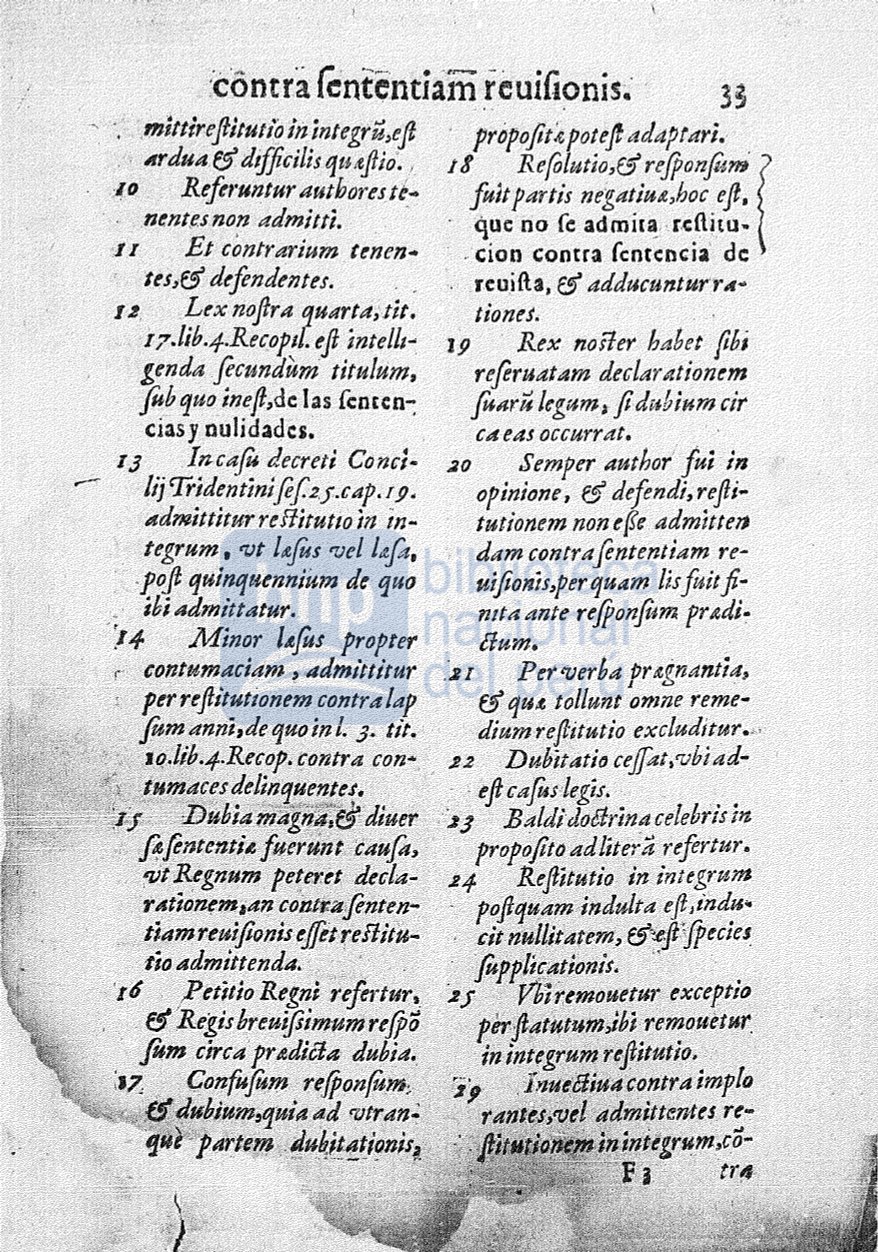 contra sententiam̅ reuisionis. 33
mittirestitutio in integrũ, est
ardua & difficilis quæstio.
10 Referuntur authores te-
nentes non admitti.
11 Et contrarium tenen-
tes, & defendentes.
12 Lex nostra quarta, tit.
17. lib. 4. Recopil. est intelli-
genda secundùm titulum,
sub quo inest, de las senten-
cias y nulidades.
13 In casu decreti Conci-
lij Tridentini ses. 25. cap. 19.
admittitur restitutio in in-
tegrum, vt læsus vel læsa,
post quinquennium de quo
ibi admittatur.
14 Minor læsus propter
contumaciam, admittitur
per restitutionem contra lap
sum anni, de quo in l. 3. tit.
10. lib. 4. Recop. contra con-
tumaces delinquentes.
15 Dubia magna, & diuer
sæ sententiæ fuerunt causa,
vt Regnum peteret decla-
rationem, an contra senten-
tiam reuisionis esset restitu-
tio admittenda.
16 Petitio Regni refertur,
& Regis breuissimum respõ
sum circa prædicta dubia.
17 Confusum responsum,
& dubium, quia ad vtran-
què partem dubitationis,
propositæ potest adaptari.
18 Resolutio, & responsum
fuit partis negatiuæ, hoc est,
que no se admita restitu-
cion contra sentencia de
reuista, & adducuntur ra-
tiones.
19 Rex noster habet sibi
reseruatam declarationem
suarũ legum, si dubium cir
ca eas occurrat.
20 Semper author fui in
opinione, & defendi, resti-
tutionem non esse admitten
dam contra sententiam re-
uisionis, per quam lis fuit fi-
nita ante responsum prædi-
ctum.
21 Per verba prægnantia,
& quæ tollunt omne reme-
dium restitutio excluditur.
22 Dubitatio cessat, vbi ad-
est casus legis.
23 Baldi doctrina celebris in
proposito ad literã refertur.
24 Restitutio in integrum
postquam indulta est, indu-
cit nullitatem, & est species
supplicationis.
25 Vbi remouetur exceptio
per statutum, ibi remouetur
in integrum restitutio.
29 Inuectiua contra implo
rantes, vel admittentes re-
stitutionem in integrum, cõ-
F 3 tra
bnp biblioteca
nacional
del perú